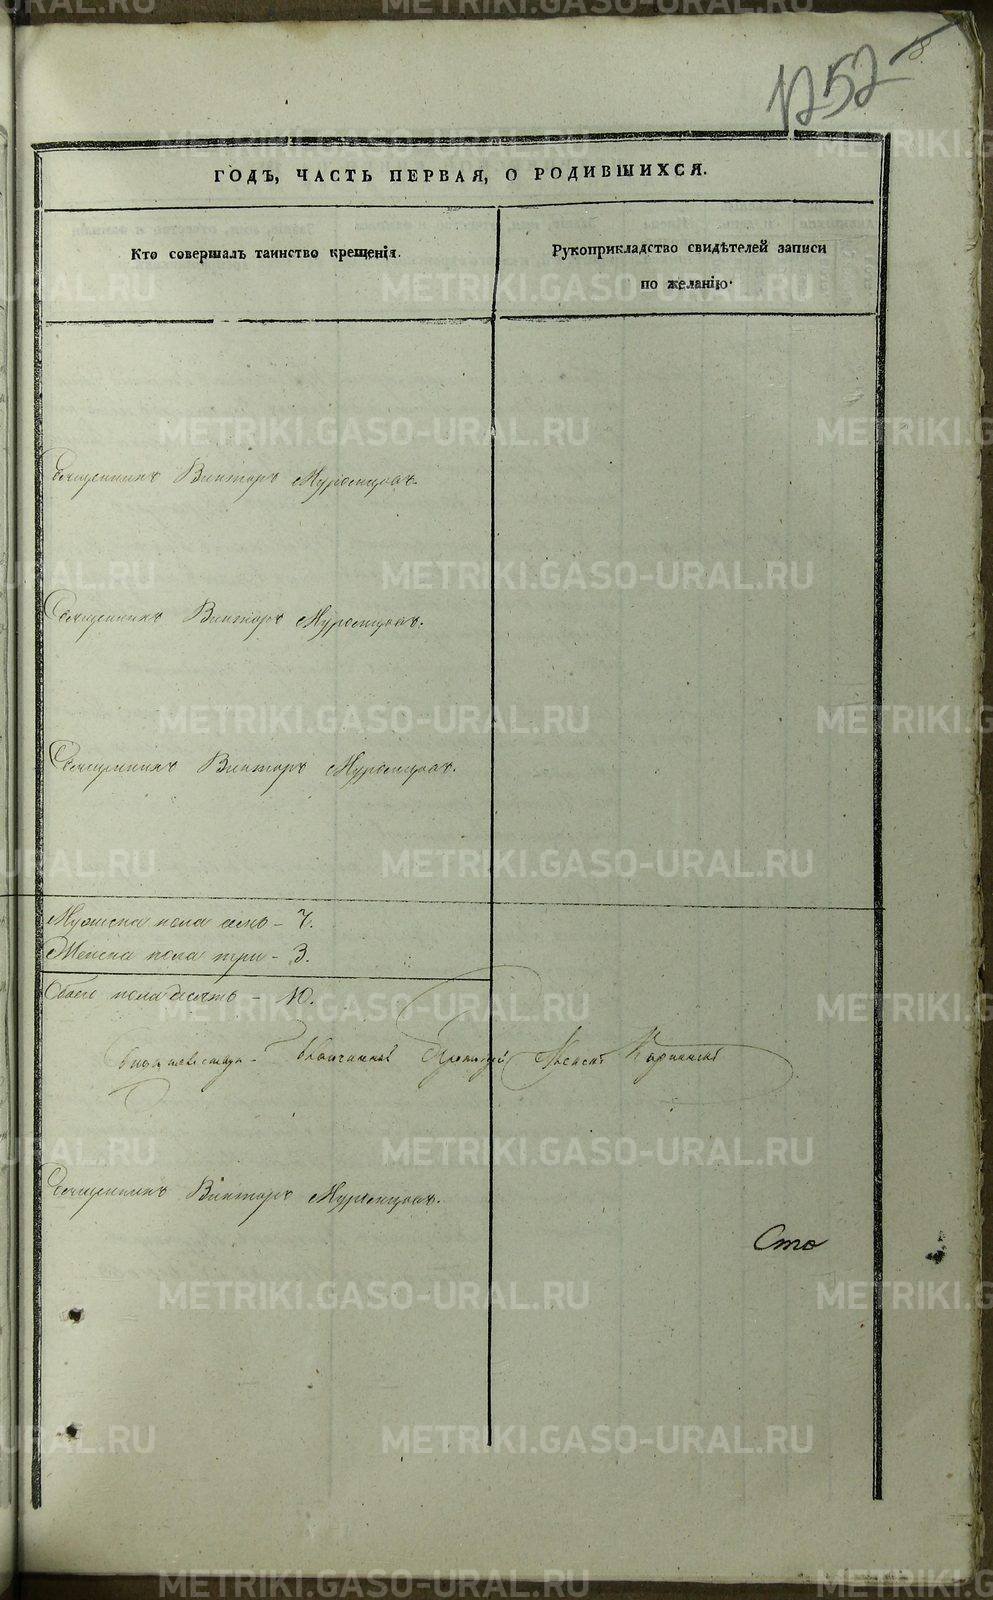 1252
18.
ГОДЪ, ЧАСТЬ ПЕРВАЯ, О РОДИВШИХСЯ.
Кто совершалъ таинство крещенія.
Рукоприкладство свидѣтелей записи
по желанію.
Священникъ Викторъ Муромцовъ.
Священникъ Викторъ Муромцовъ.
Священникъ Викторъ Муромцовъ.
Мужска пола семь – 7.
Женска пола три – 3.
Обоего пола десять – 10.
Священникъ Викторъ Муромцовъ.
Сто
METRIKI.GASO-URAL.RU